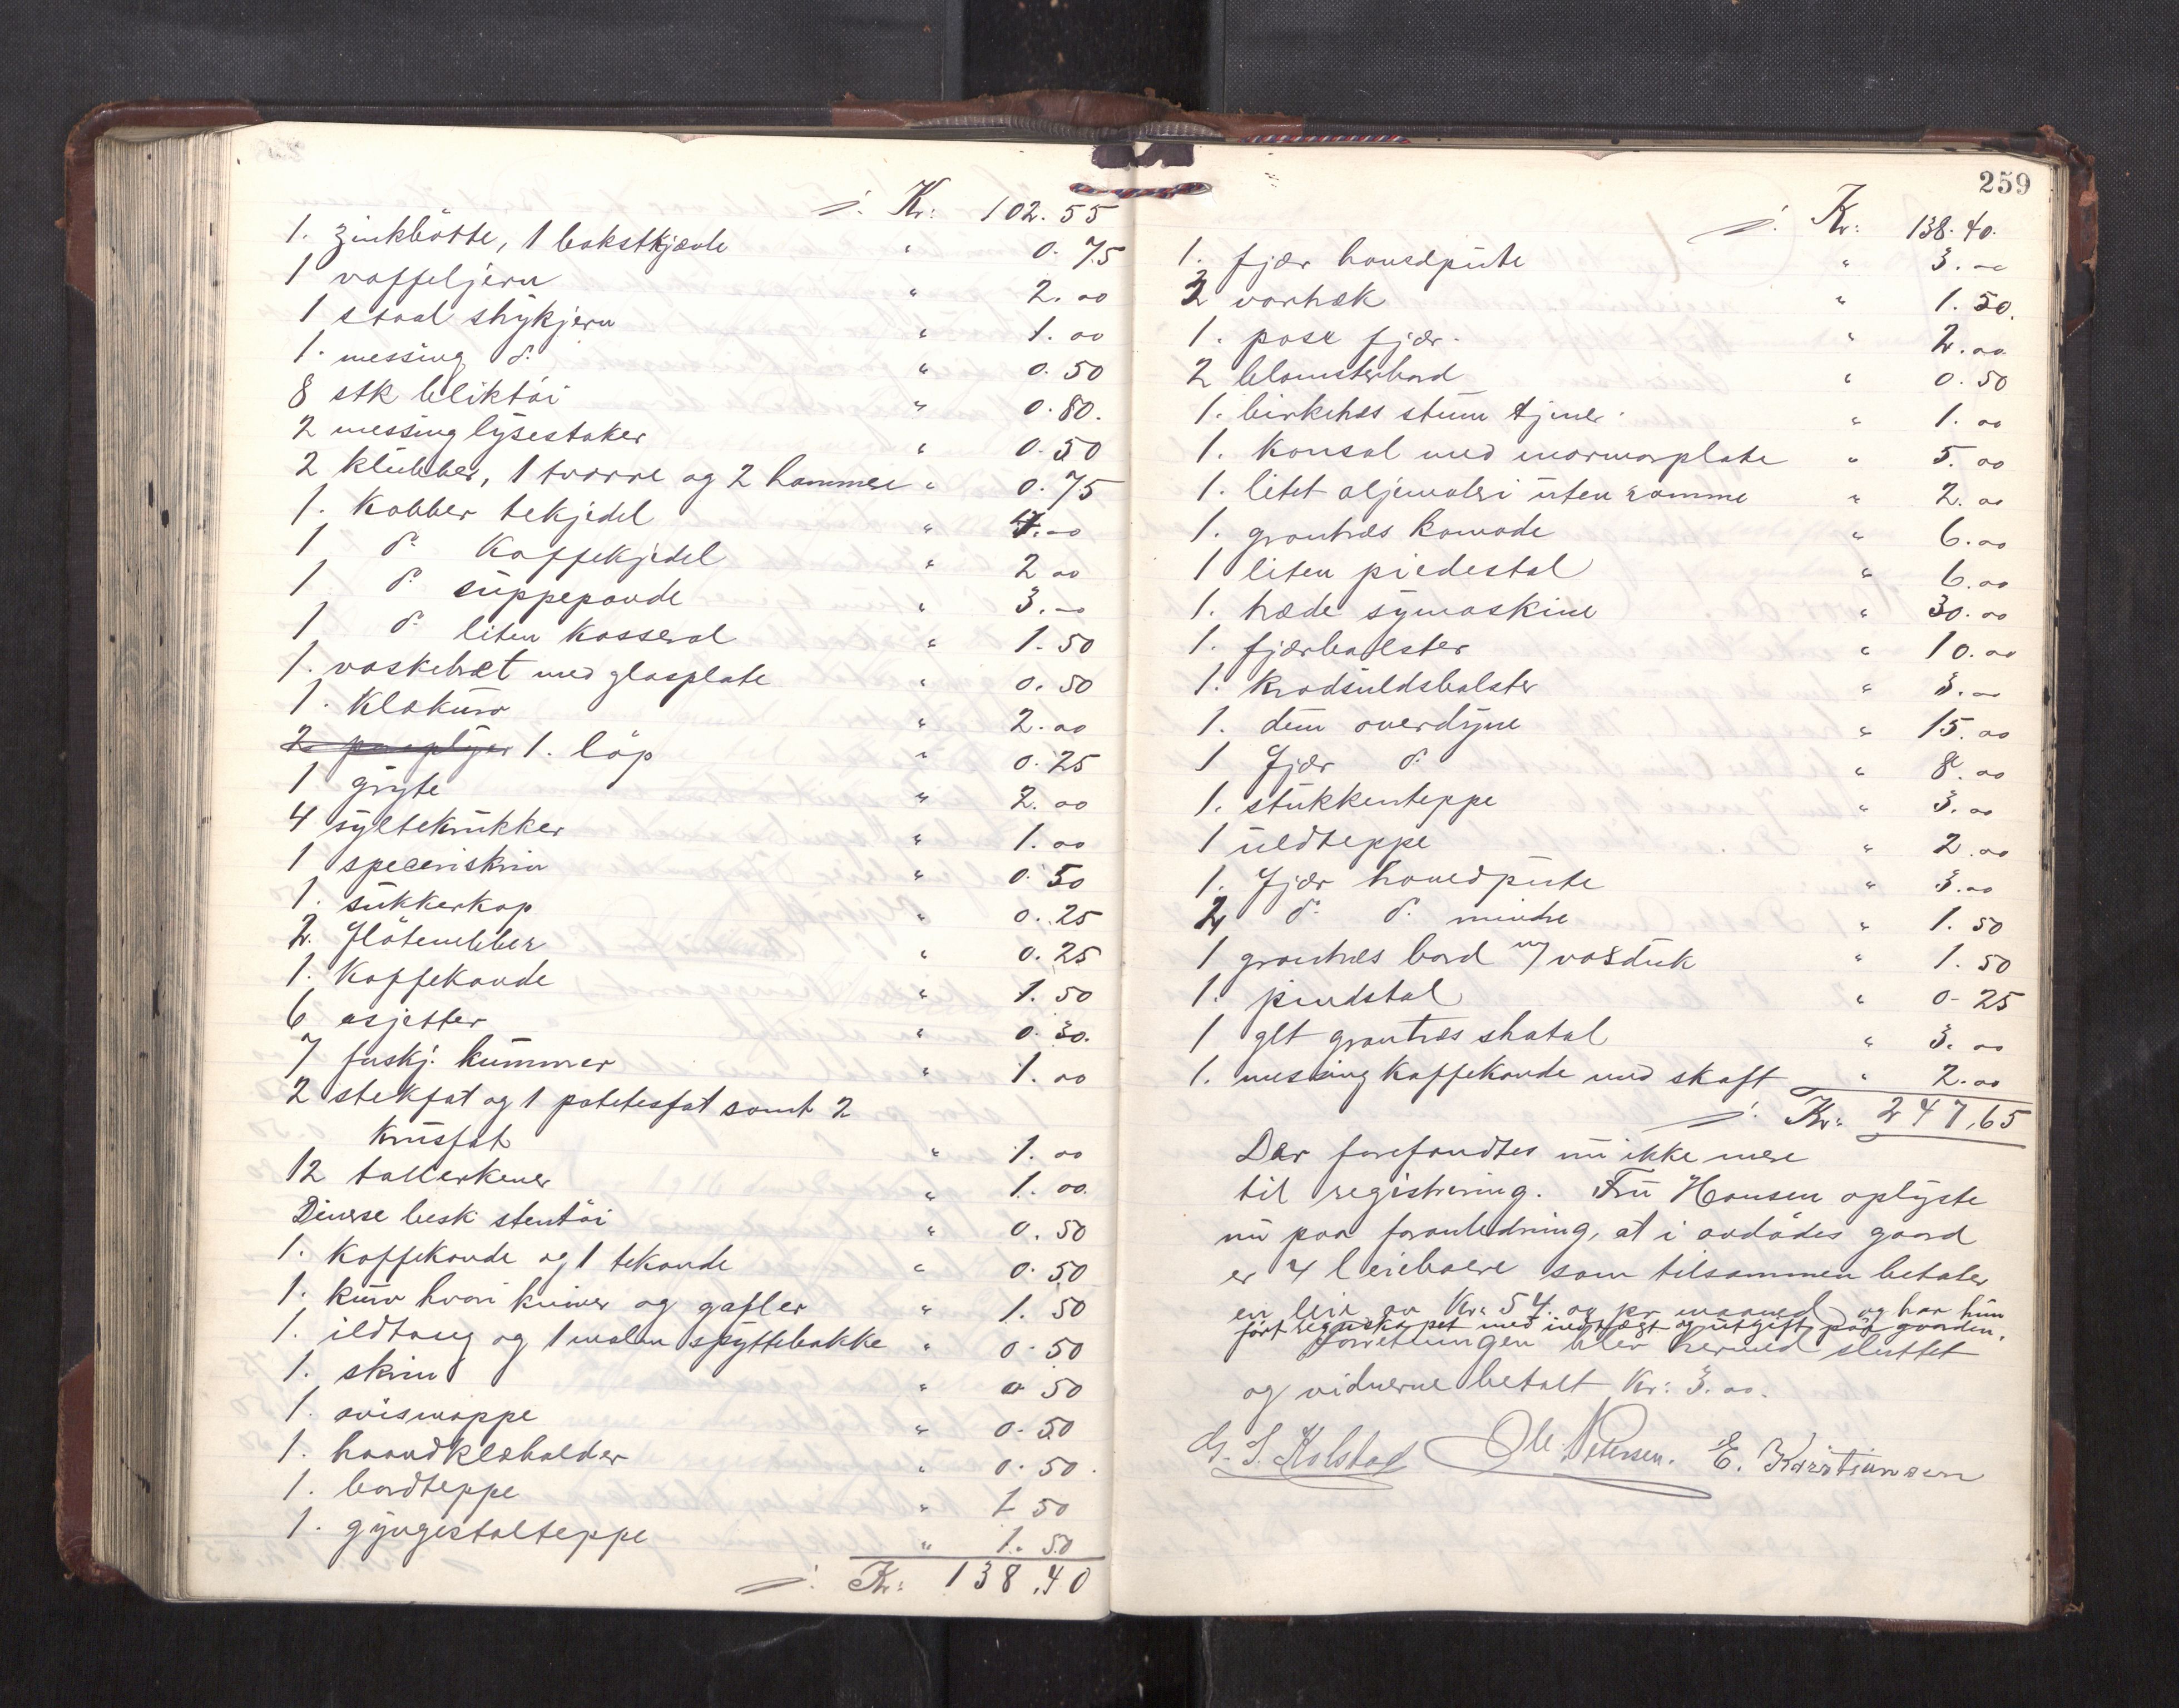 /. Kr: 102.55
1. zinkbötte, 1 bakstkjævle " 0.75
1 vaffeljern " 2.00
1 staal strykjern " 1.00
1. messing do " 0.50
8 stk bliktöi " 0.80.
2 messing lysestaker " 0.50
2 klubber, 1 tvorre og 2 hammere " 0.75
1. Kobber tekjedel " 4.00
1 do Kaffekjedel " 2 00
1 do suppepande " 3.00
1 do liten Kasserol " 1.50
1. vaskebræt med glasplate " 0.50
1. Klækurv " 2.00
1. löp " 0.25
1 gryte " 2.00
4 syltekrukker " 1.00
1 speceriskrin " 0.50
1. sukkerkop " 0.25
2. flötemebber " 0.25
1. Kaffekande " 1.50
6 asjetter " 0.30.
7 forskj. kummer " 1.00
2 stekfat og 1 potetesfat samt 2
Krusfat " 1.00
12 tallerkener " 1.00.
Diverse besk. stentöi " 0.50
1. Kaffekande og 1 tekande " 0.50
1. kurv hvori kniver og gafler " 1.50
1. ildtang og 1 malm spyttebakke " 0.50
1. skrin " 0 50
1. avismappe " 0.50
1. haandklæholder " 0.50.
1. bordteppe " 1 50
1. gyngestolteppe " 1.50
/. Kr: 138.40
259
/. Kr: 138.40.
1. fjær hovedpute " 3.00
2 vortræk " 1.50.
1. pose fjær. " 2.00.
2 blomsterbord " 0.50
1. birketræs stum tjener. " 1.00
1. Konsol med marmorplate " 5.00
1. litet oljemaleri uten ramme " 2.00
1. grantræs komode " 6.00
1 liten piedestal " 6.00
1. træde symaskine " 30.00
1. fjærbolster " 10.00
1. Kradsuldsbolster " 3.00
1. dun overdyne " 15.00
1 fjær do " 8.00
1. stukkenteppe " 3.00
1 uldteppe " 2.00
1. fjær hovedpute " 3.00
2 do do mindre " 1.50
1 grantræs bord m/ voksduk " 1.50
1. pindstol " 0-25
1 glt grantræs skatol " 3.00
1. messing Kaffekande med skaft " 2.00
/. Kr: 247,65
Der forefandtes nu ikke mere
til registrering. Fru Hansen oplyste
nu paa foranledning, at i avdödes gaard
er 4 leieboere som tilsammen betaler
en leie av Kr: 54.00 pr maaned og har hun
fört regnskapet med indtægt og utgift paa gaarden.
Forretningen blev hermed sluttet
og vidnerne betalt Kr: 3.00.
G. S. Kolstad Ole Petersen. E. Kristiansen